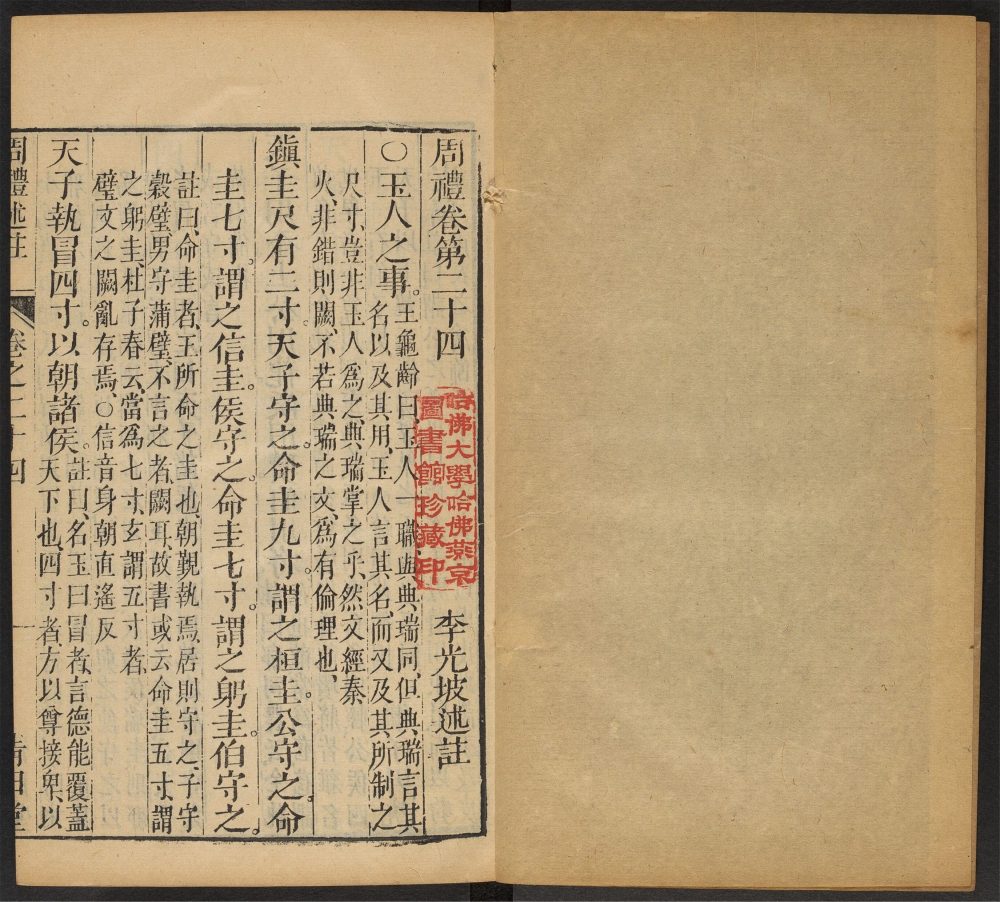 周禮卷第二十四
李光坡述註
哈佛大學哈佛燕京
圖書館珍藏印
○玉人之事。王龜齡曰、玉人一職與典瑞同、但典瑞言其
名以及其用、玉人言其名、而又及其所制之
尺寸、豈非玉人爲之、典瑞掌之乎、然文經秦
火、非錯則闕、不若典瑞之文、爲有倫理也、
鎭圭尺有二寸、天子守之。命圭九寸。謂之桓圭。公守之。命
圭七寸。謂之信圭。侯守之。命圭七寸。謂之躬圭。伯守之。
註曰、命圭者、王所命之圭也、朝覲執焉、居則守之、子守
穀璧、男守蒲璧、不言之者、闕耳、故書或云命圭五寸、謂
之躬圭、杜子春云、當爲七寸、玄謂五寸者、
璧文之闕亂存焉、○信音身朝直遙反
天子執冒四寸。以朝諸侯。註曰、名玉曰冒者、言德能覆蓋
天下也、四寸者、方以尊接卑、以
周禮述註
卷之二十四
一